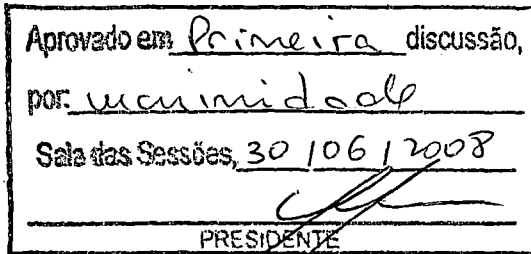 Aprovado em Primeira discussão,
por: unanimidade
Sala das Sessões, 30 / 06 / 2008
PRESIDENTE